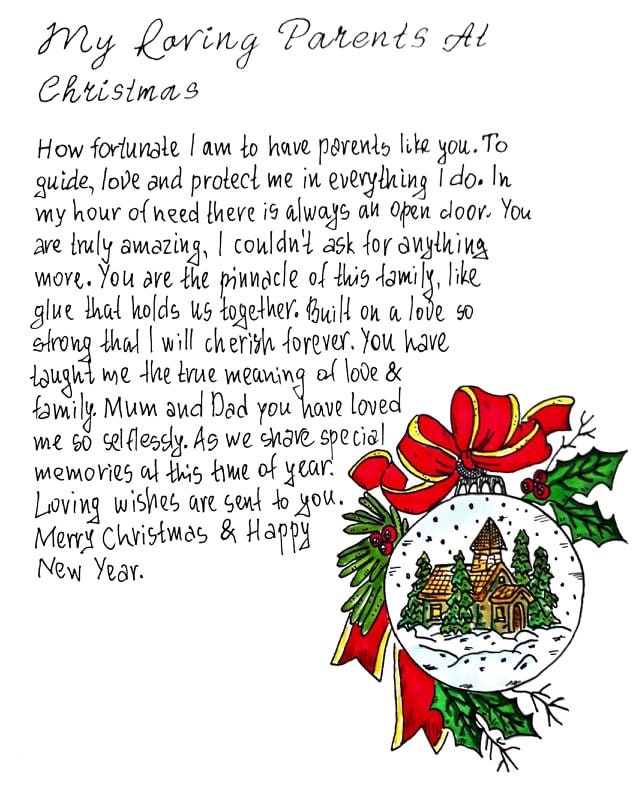 My Loving Parents At
Christmas
How fortunate I am to have parents like you. To
guide, love and protect me in everything I do. In
my hour of need there is always an open door. You
are truly amazing, I couldn't ask for anything
more. You are the pinnacle of this family, like
glue that holds us together. Built on a love so
strong that I will cherish forever. You have
taught me the true meaning of love &
family. Mum and Dad you have loved
me so selflessly. As we share special
memories at this time of year.
Loving wishes are sent to you.
Merry Christmas & Happy
New Year.